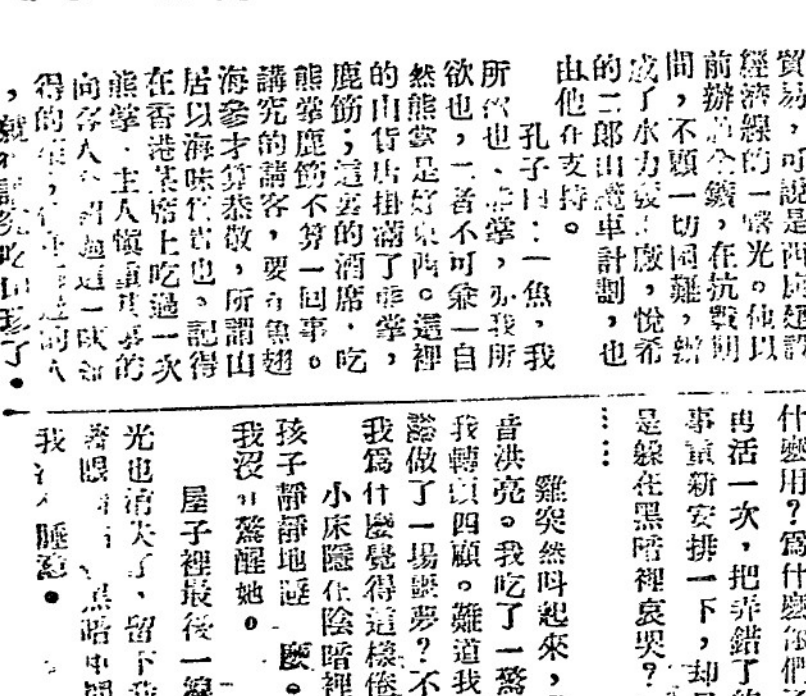 貿易,可說是西康建設
經濟線的一曙光。他以
前辦過金鑛,在抗戰期
間,不顧一切困難,辦
成了水力發工廠,悅希
的二郎山纜車計劃,也
由他在支持。
孔子曰:一魚,我
所欲也、熊掌,亦我所
欲也,二者不可兼一自
然熊掌是好東西。這裡
的山貨店掛滿了熊掌,
鹿筋;這裏的酒席,吃
熊掌鹿筋不算一回事。
講究的請客,要有魚翅
海參才算恭敬,所謂山
居以海味為貴也。記得
在香港某席上吃過一次
熊掌,主人愼重其事的
向客人介紹過這一味
得的
什麼用?爲什麼
再活一次,把弄錯了
事重新安排一下,却
是躲在黑暗裡哀哭?
……
雞突然叫起來,
音洪亮。我吃了一驚
我轉頭四顧。難道我
做了一場噩夢?不
我爲什麼覺得這樣倦
小床隱在陰暗裡
孩子靜靜地睡 。
我沒有驚醒她。
屋子裡最後一線
光也消失了、留下我
着眼 黑暗中
我沒 睡意。